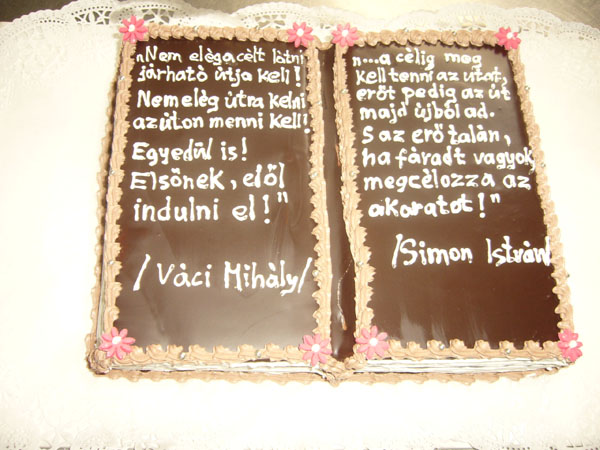 „Nem elég a célt látni
járható útja kell!
Nem elég útra kelni
az úton menni kell!
Egyedül is!
Elsőnek, elől
indulni el!"
/Váci Mihály/
„...a célig meg
kell tenni az utat,
erőt pedig az út
majd újból ad.
S az erő talán,
ha fáradt vagyok
megcélozza az
akaratot!"
/Simon István